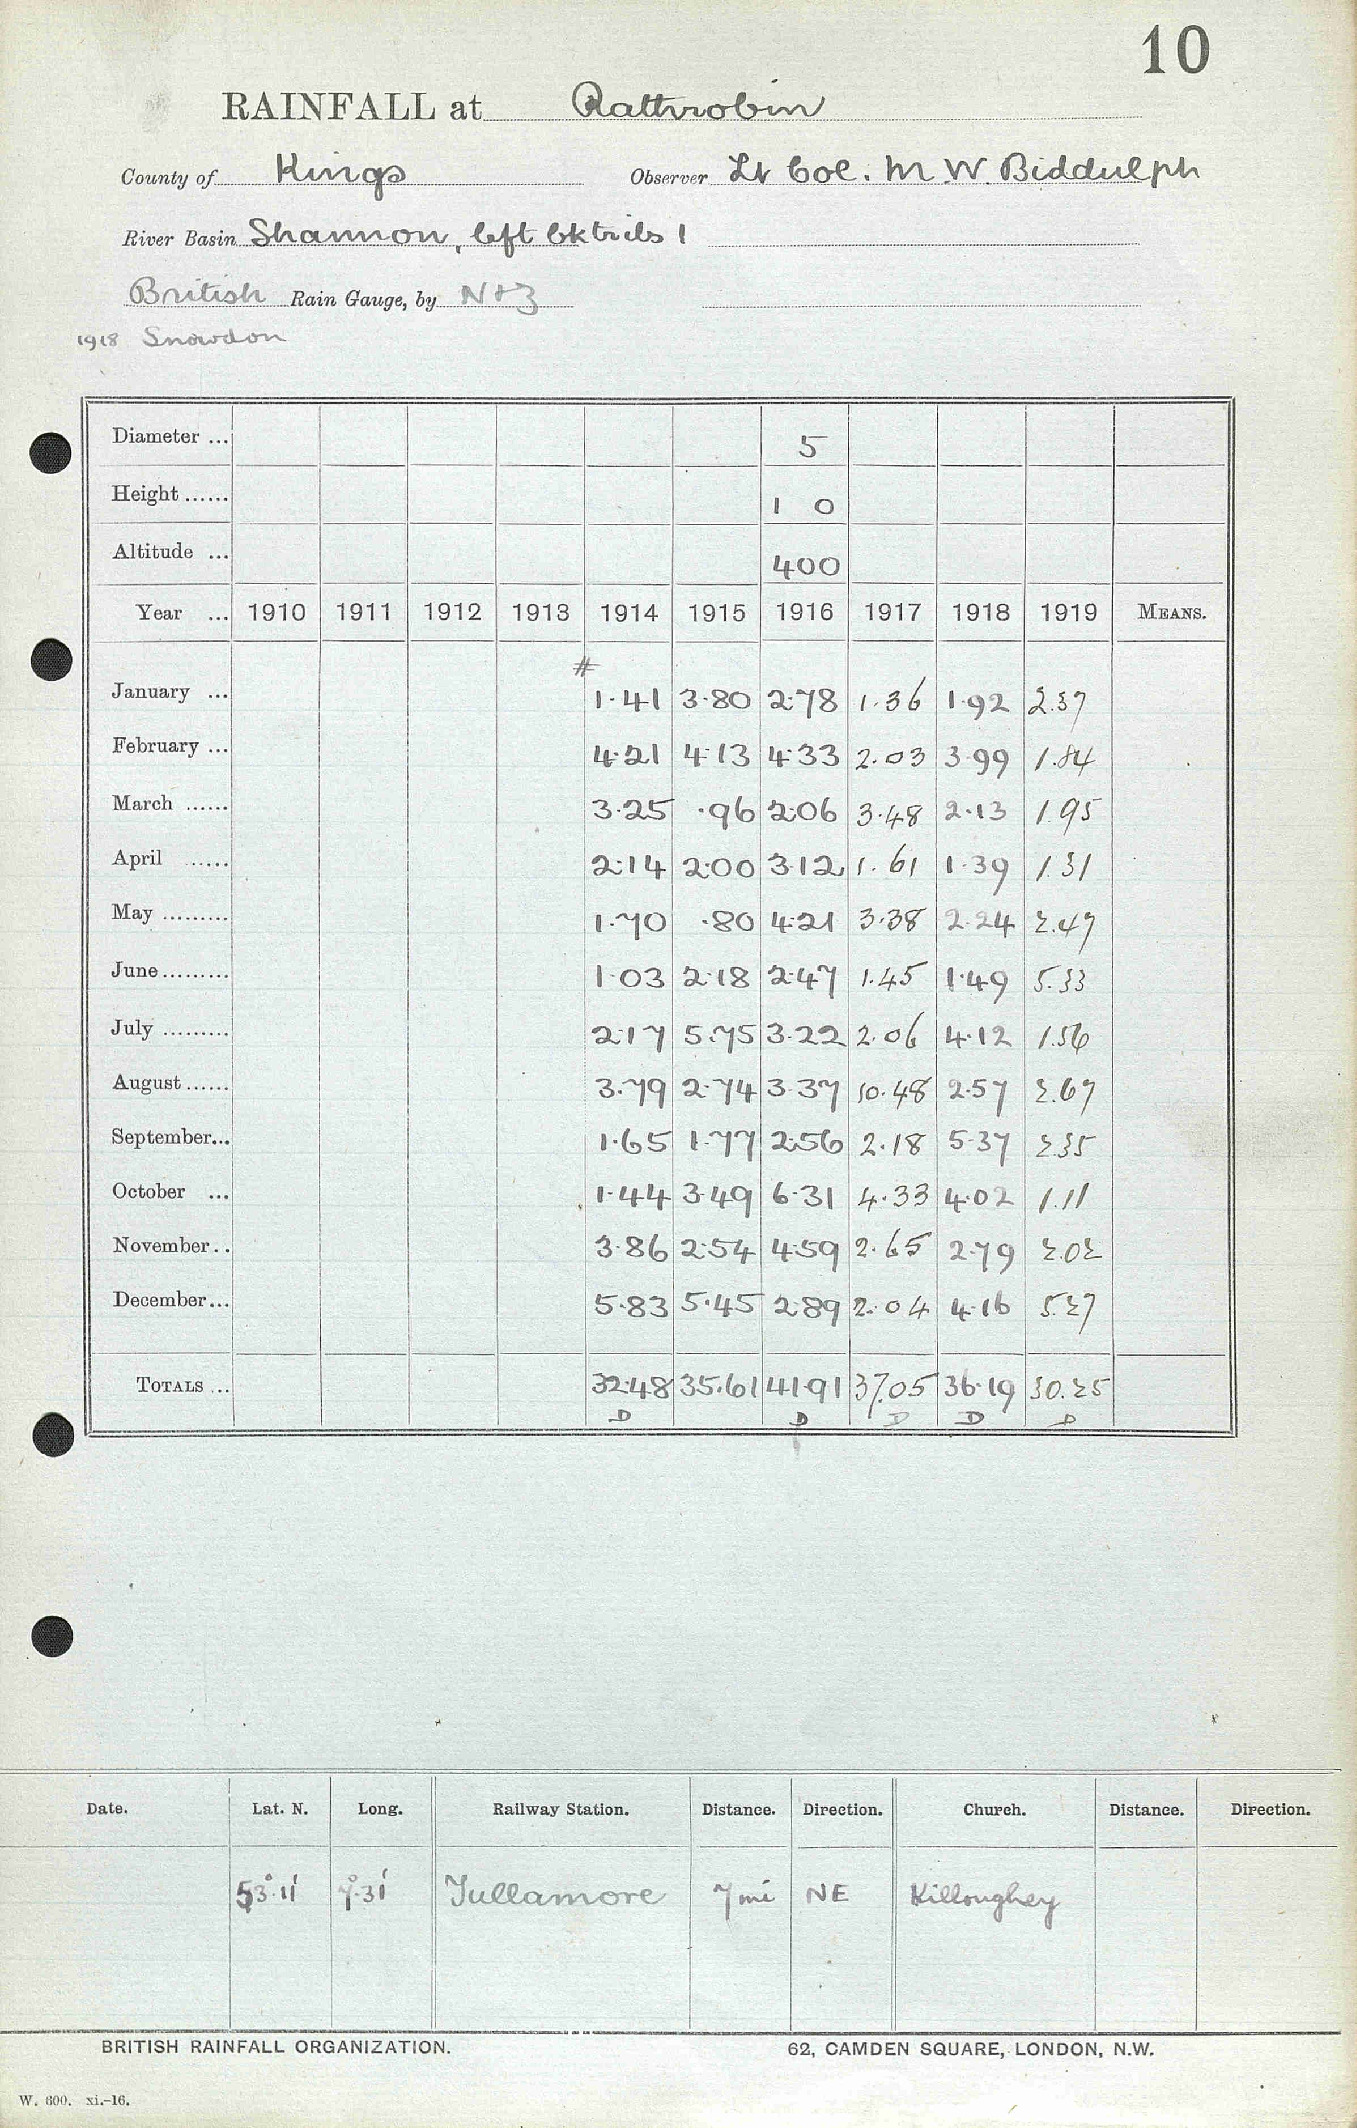 10
RAINFALL at Rathrobin
County of Kings Observer Lt Col. M W Biddulph
River Basin Shannon, left bk tribs 1
British Rain Gauge, by N & Z
1918 Snowdon
Diameter ... 5
Height ...... 1 0
Altitude ... 400
Year ... 1910 1911 1912 1913 1914 1915 1916 1917 1918 1919 MEANS.
#
January ... 1.41 3.80 2.78 1.36 1.92 2.37
February ... 4.21 4.13 4.33 2.03 3.99 1.84
March ...... 3.25 .96 2.06 3.48 2.13 1.95
April ...... 2.14 2.00 3.12 1.61 1.39 1.31
May ......... 1.70 .80 4.21 3.38 2.24 2.47
June ......... 1.03 2.18 2.47 1.45 1.49 5.33
July ......... 2.17 5.75 3.22 2.06 4.12 1.56
August ...... 3.79 2.74 3.37 10.48 2.57 2.67
September... 1.65 1.77 2.56 2.18 5.37 2.35
October ... 1.44 3.49 6.31 4.33 4.02 1.11
November.. 3.86 2.54 4.59 2.65 2.79 2.02
December... 5.83 5.45 2.89 2.04 4.16 5.27
TOTALS ... 32.48 35.61 41.91 37.05 36.19 30.25
D D D D D
Date. Lat. N. Long. Railway Station. Distance. Direction. Church. Distance. Direction.
53°.11' 7°.31' Tullamore 7 mi NE Killoughey
BRITISH RAINFALL ORGANIZATION. 62, CAMDEN SQUARE, LONDON, N.W.
W. 600. xi.-16.